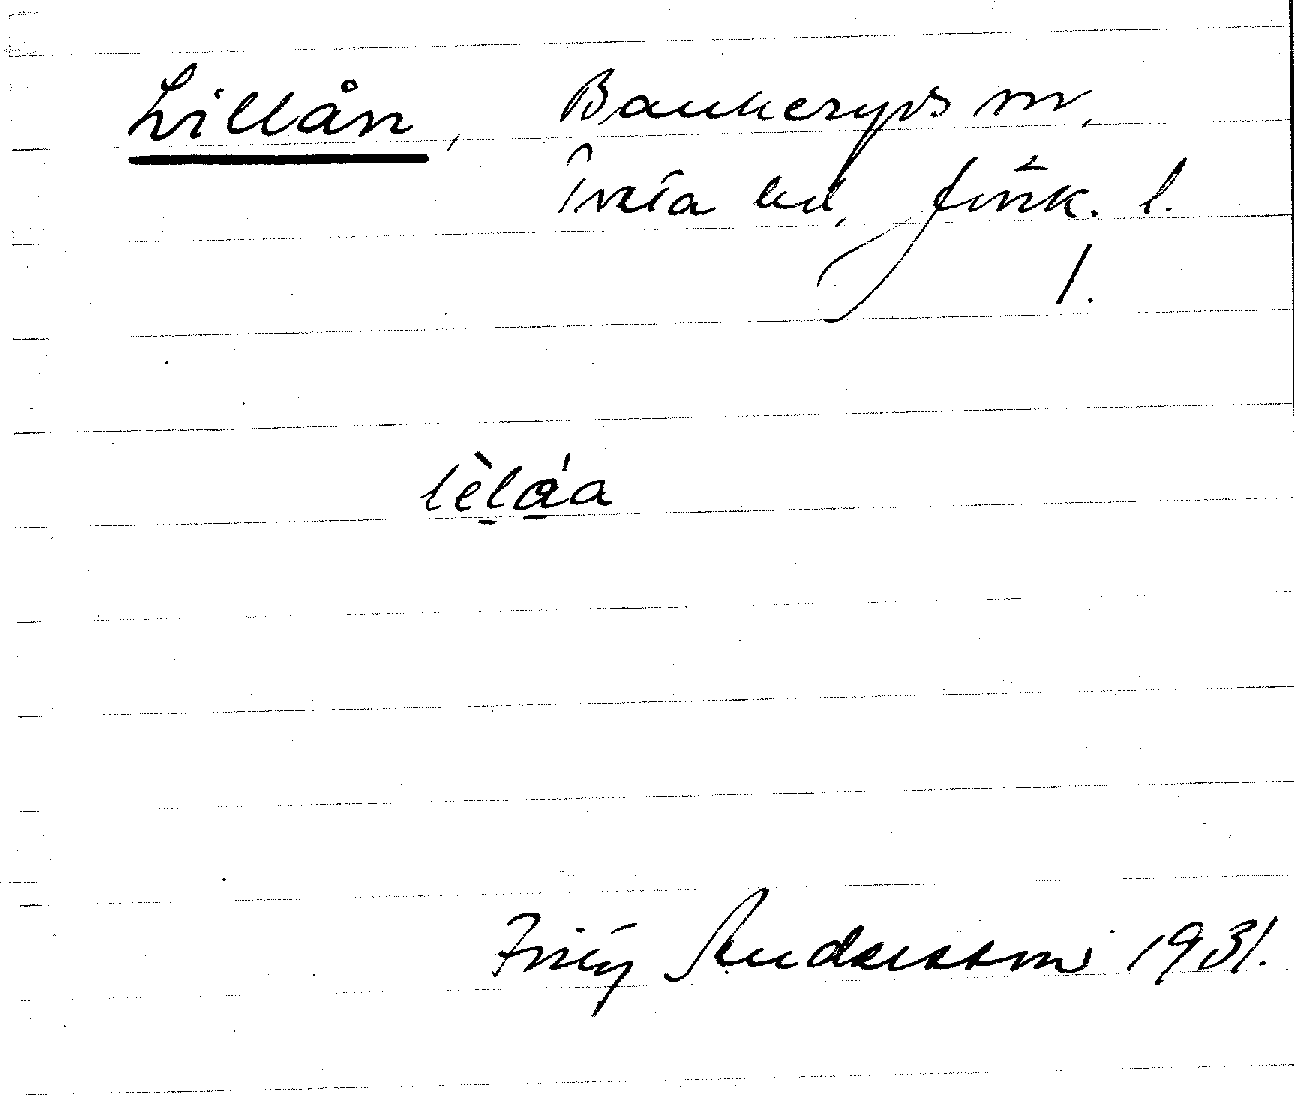 Lillån, Bankeryds sn,
Tveta hd, Jönk. l.
1.
lèláa
Frity Andersson 1931.